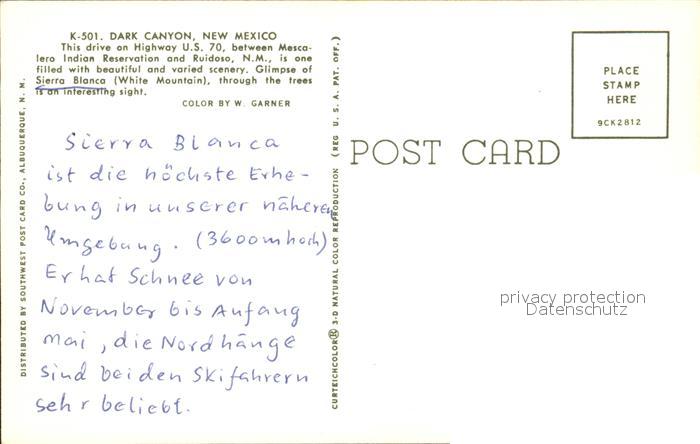 K-501. DARK CANYON, NEW MEXICO
This drive on Highway U.S. 70, between Mesca-
lero Indian Reservation and Ruidoso, N.M., is one
filled with beautiful and varied scenery. Glimpse of
Sierra Blanca (White Mountain), through the trees
is an interesting sight.
COLOR BY W. GARNER
Sierra Blanca
ist die höchste Erhe-
bung in unserer näheren
Umgebung. (3600m hoch)
Er hat Schnee von
November bis Anfang
Mai, die Nordhänge
sind bei den Skifahrern
sehr beliebt.
DISTRIBUTED BY SOUTHWEST POST CARD CO., ALBUQUERQUE, N. M.
CURTEICHCOLOR® 3-D NATURAL COLOR REPRODUCTION (REG U. S. A. PAT. OFF.)
POST CARD
PLACE
STAMP
HERE
9CK2812
privacy protection
Datenschutz